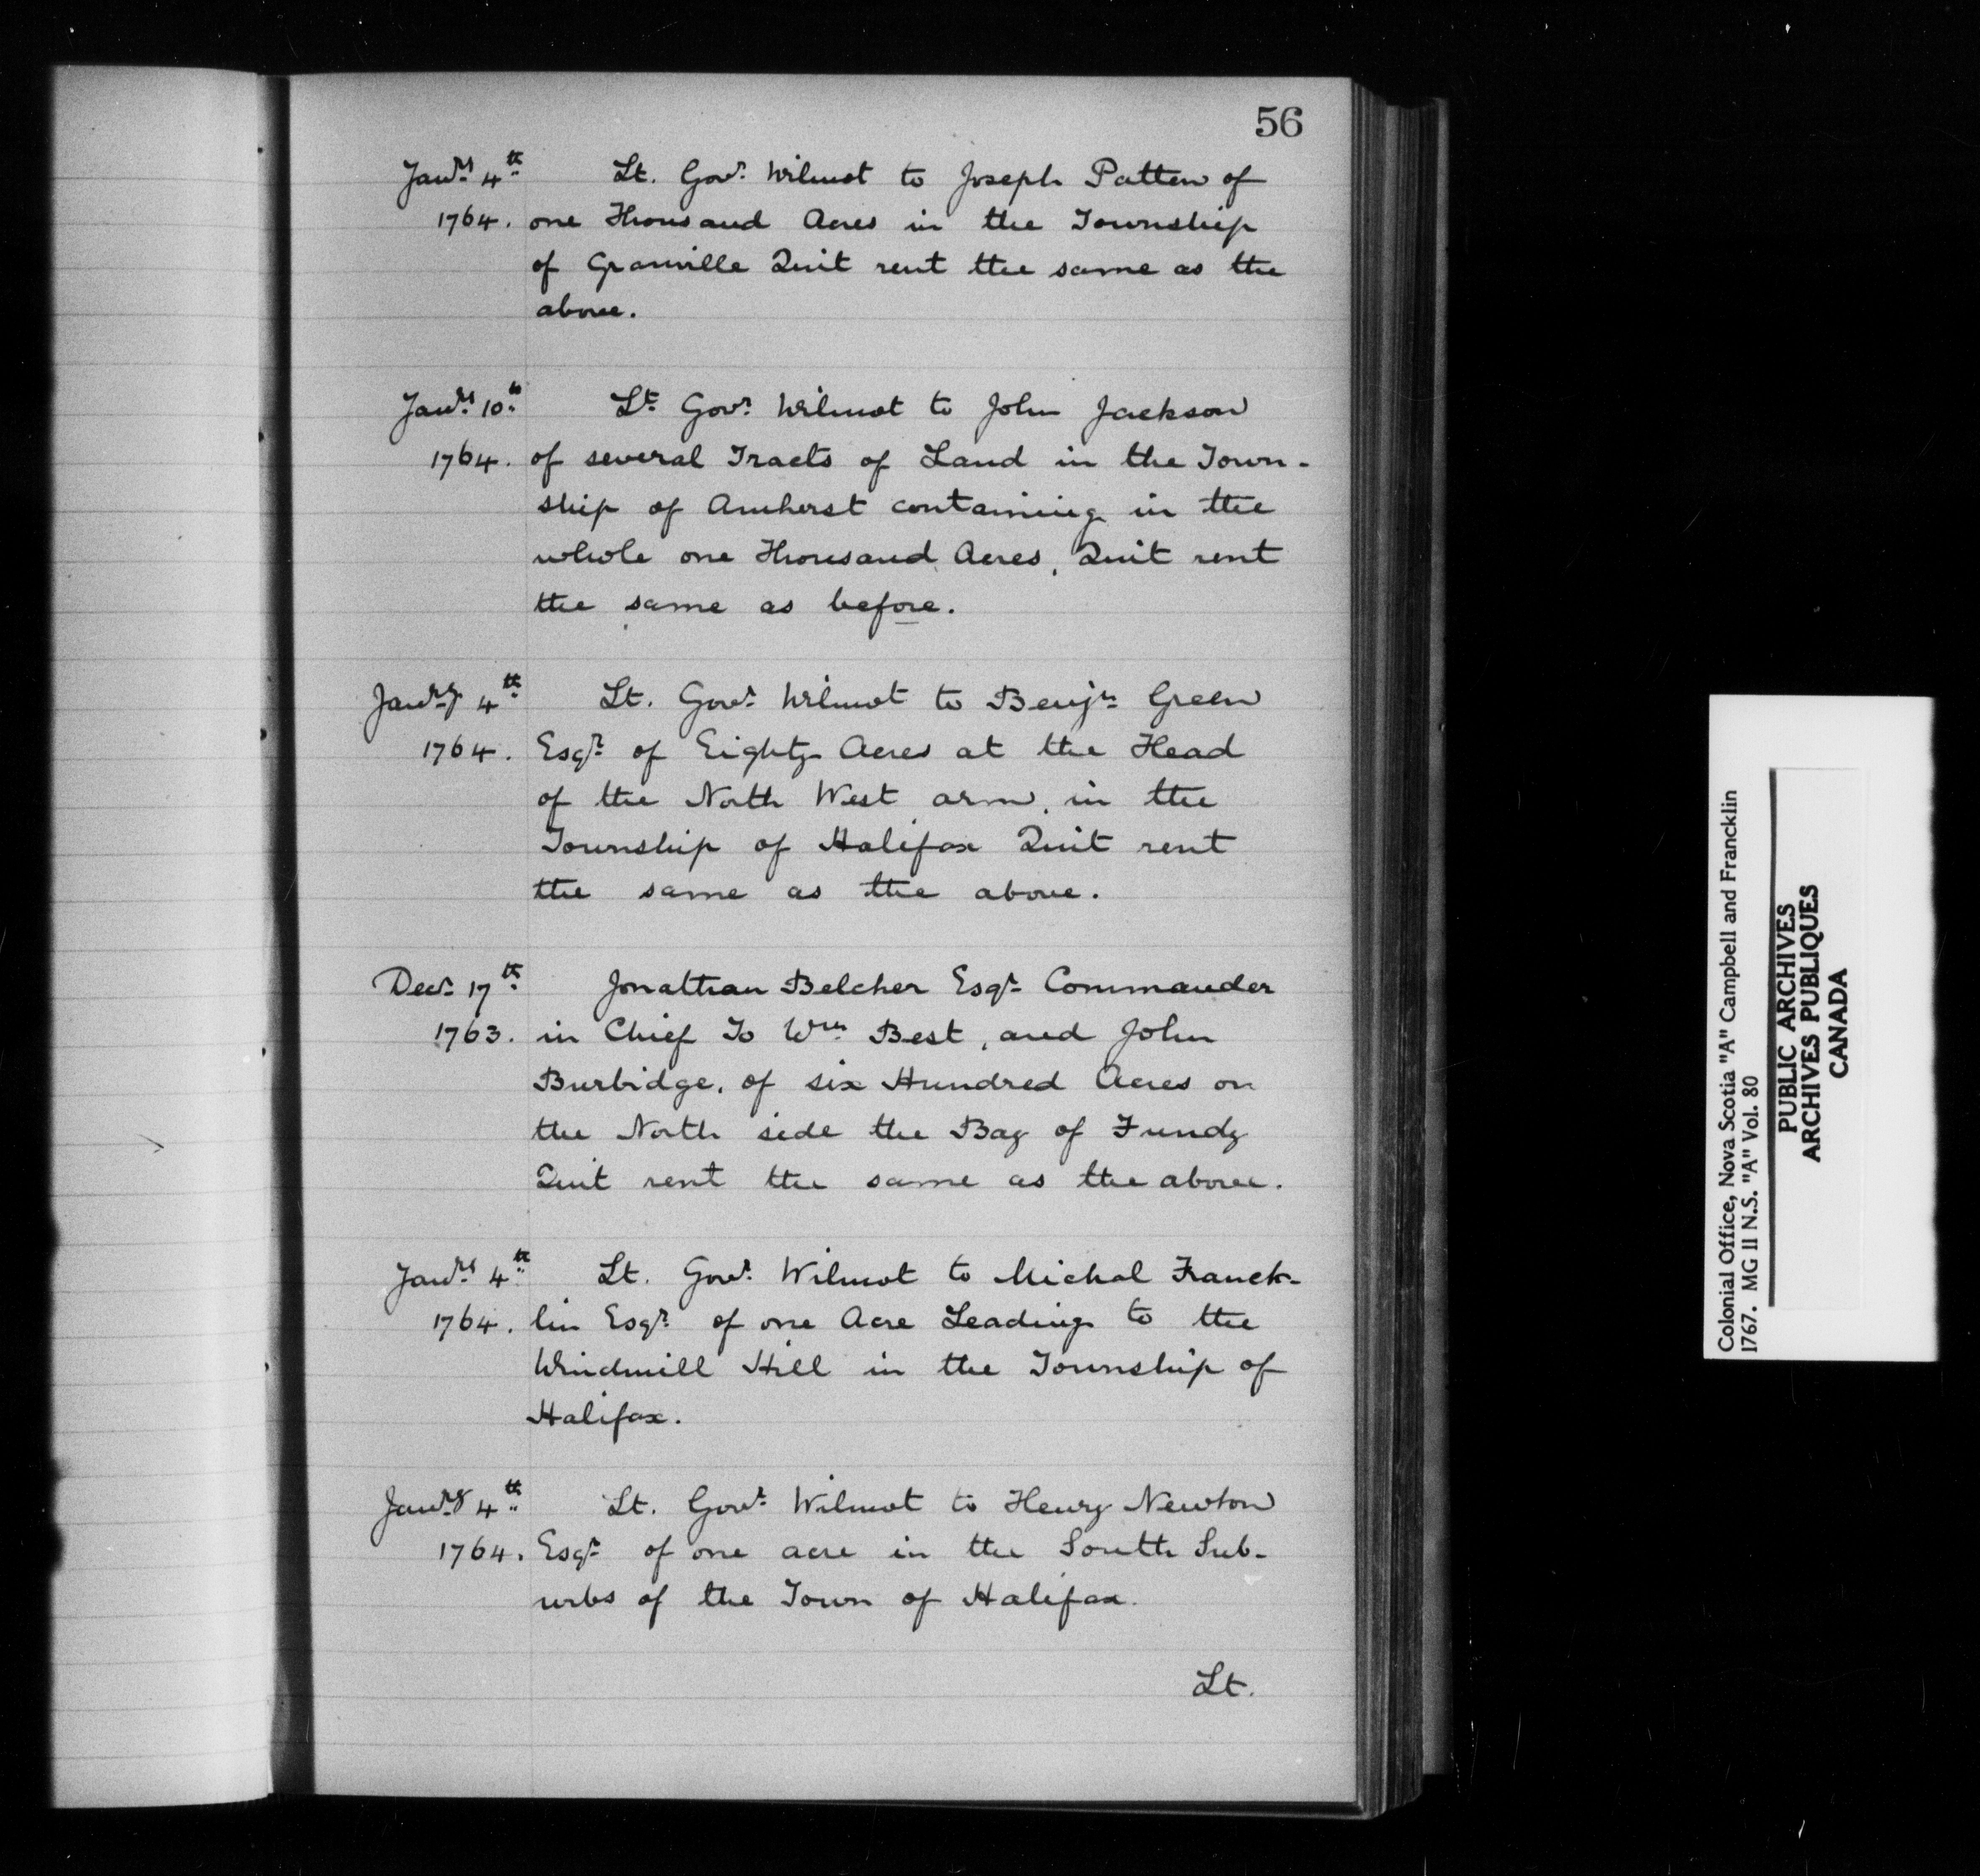 56
Janry 4th Lt. Govr. Wilmot to Joseph Patten of
1764. one Thousand Acres in the Township
of Granville Quit rent the same as the
above.
Janry 10th Lt. Govr. Wilmot to John Jackson
1764. of several Tracts of Land in the Town-
ship of Amherst containing in the
whole one Thousand Acres, Quit rent
the same as before.
Janry 4th Lt. Govr. Wilmot to Benjn. Green
1764. Esqr. of Eighty Acres at the Head
of the North West arm, in the
Township of Halifax Quit rent
the same as the above.
Decr. 17th Jonathan Belcher Esqr. Commander
1763. in Chief To Wm. Best, and John
Burbidge, of six Hundred Acres on
the North side the Bay of Fundy
Quit rent the same as the above.
Janry 4th Lt. Govr. Wilmot to Michal Franck-
1764. lin Esqr. of one Acre Leading to the
Windmill Hill in the Township of
Halifax.
Janry 4th Lt. Govr. Wilmot to Henry Newton
1764. Esqr. of one acre in the South Sub-
urbs of the Town of Halifax.
Lt.
Colonial Office, Nova Scotia "A" Campbell and Francklin
1767. MG 11 N.S. "A" Vol. 80
PUBLIC ARCHIVES
ARCHIVES PUBLIQUES
CANADA